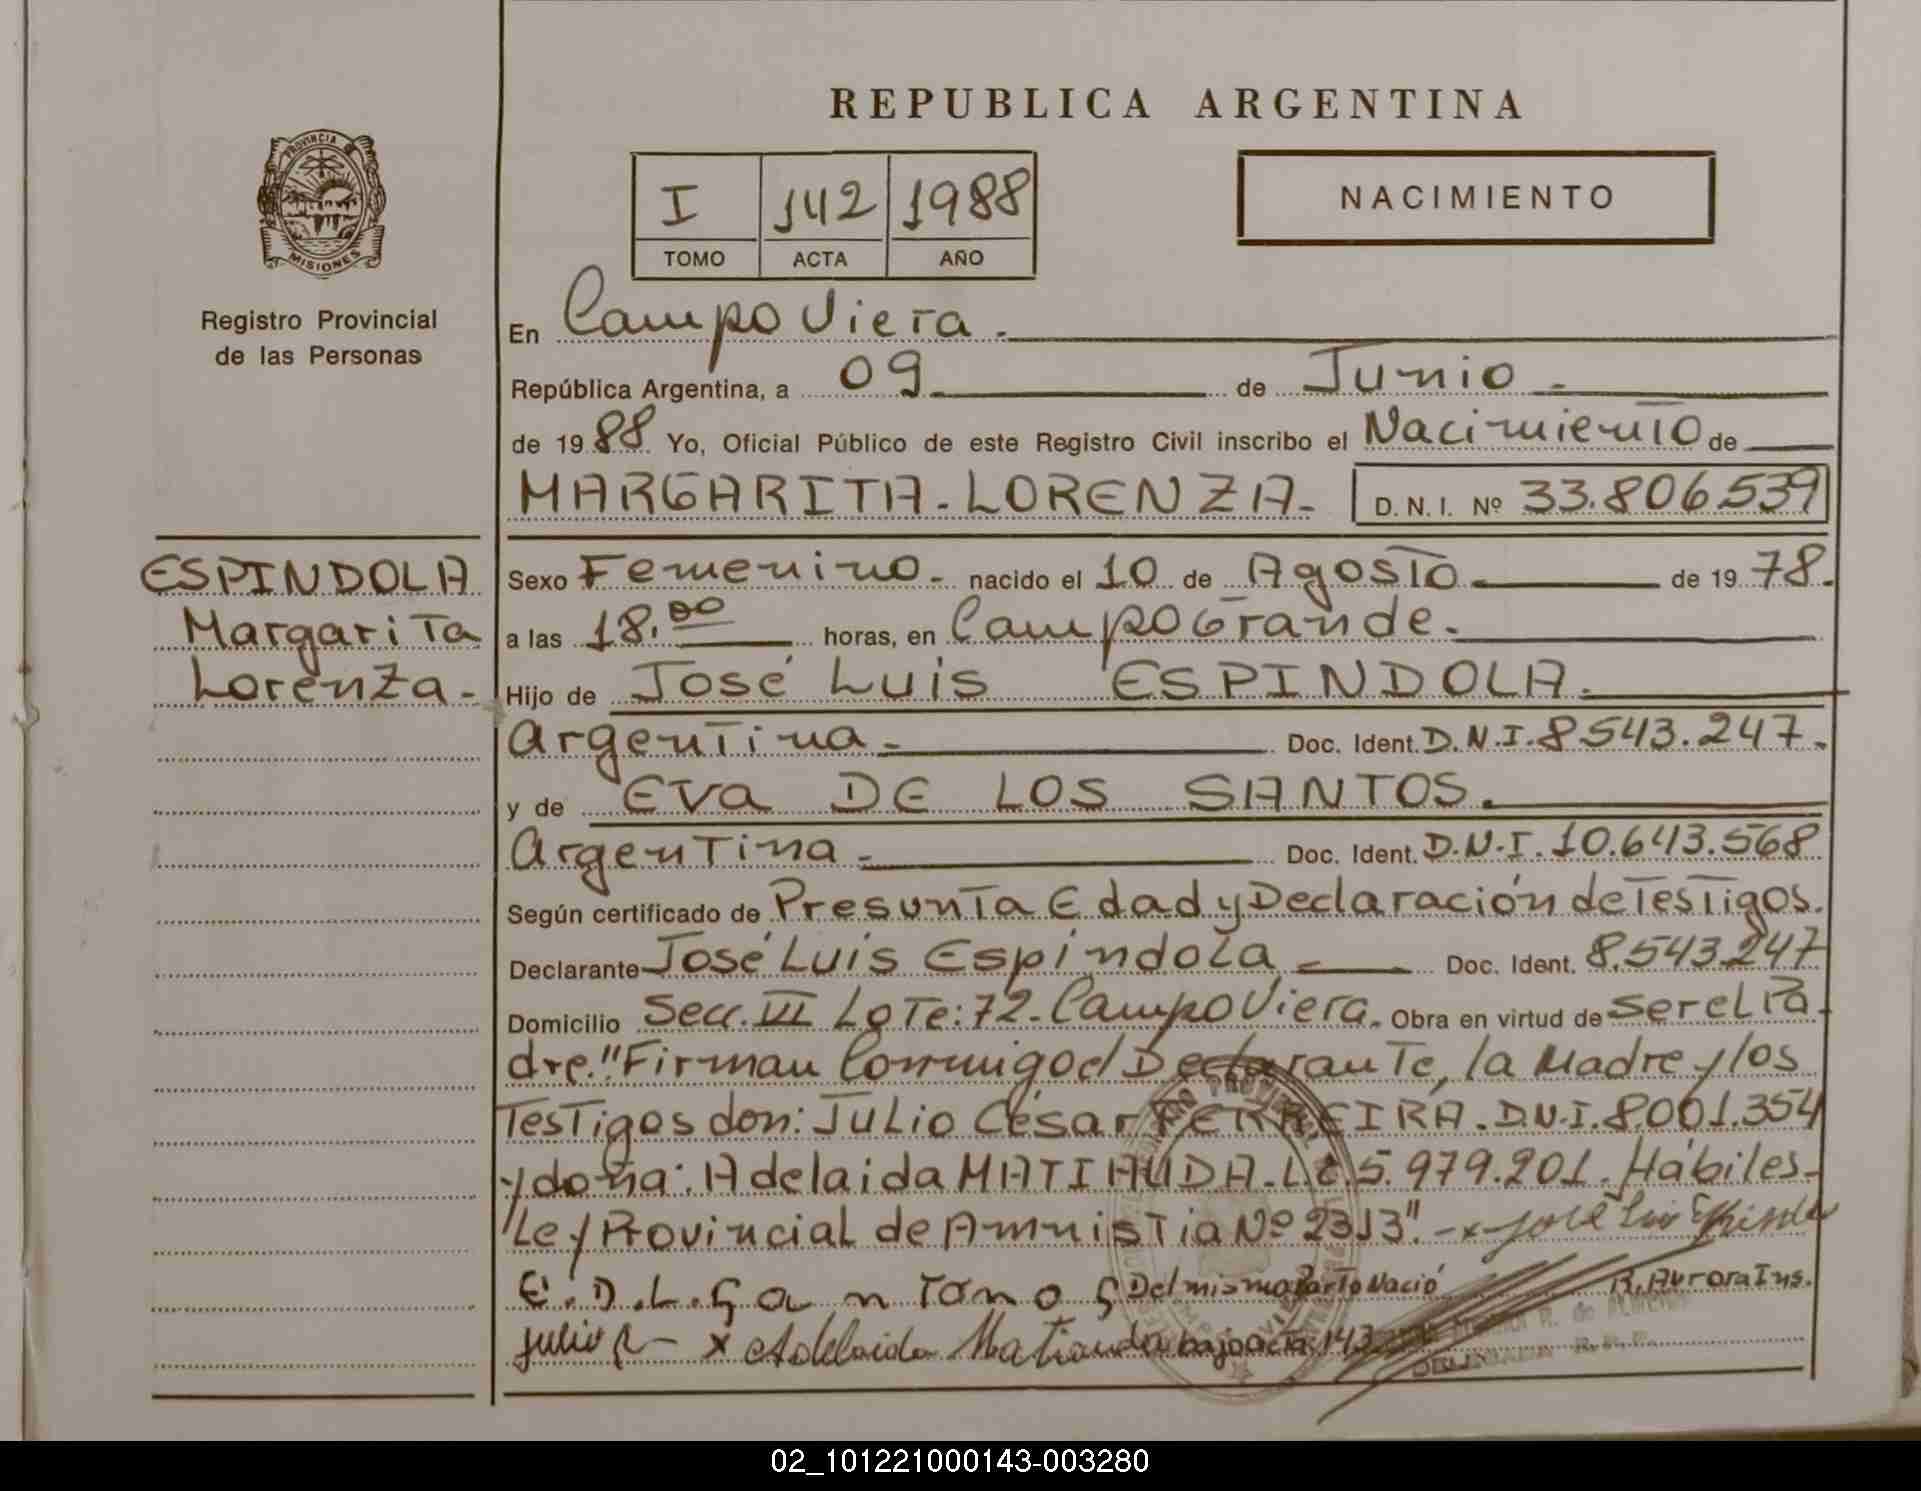 REPUBLICA ARGENTINA
PROVINCIA DE
MISIONES
Registro Provincial
de las Personas
I 142 1988
TOMO ACTA AÑO
NACIMIENTO
En Campo Viera.
República Argentina, a 09 de Junio
de 1988 Yo, Oficial Público de este Registro Civil inscribo el Nacimiento de
MARGARITA-LORENZA- D. N. I. Nº 33.806.539
ESPINDOLA
Margarita
Lorenza-
Sexo Femenino- nacido el 10 de Agosto de 1978.
a las 18.00 horas, en Campo Grande.
Hijo de José Luis ESPINDOLA.
Argentina- Doc. Ident. D.N.I. 8543.247.
y de Eva DE LOS SANTOS.
Argentina- Doc. Ident. D.N.I. 10.643.568
Según certificado de Presunta Edad y Declaración de Testigos.
Declarante José Luis Espíndola Doc. Ident. 8.543.247
Domicilio Secc. VI Lote: 72- Campo Viera. Obra en virtud de ser el Pa
dre."Firman Conmigo el Declarante, la Madre y los
Testigos don: Julio César FERREIRA. D.N.I. 8.001.354
y doña: Adelaida MATIAUDA-L.C. 5.979.201. Hábiles-
Ley Provincial de Amnistia Nº 2313".- x José Luis Espindola
E. D. L. San Tomo S Del mismo Parto Nació R. Aurora Ins.
Julio x Adelaida Matiauda bajo acta: 143
02_101221000143-003280